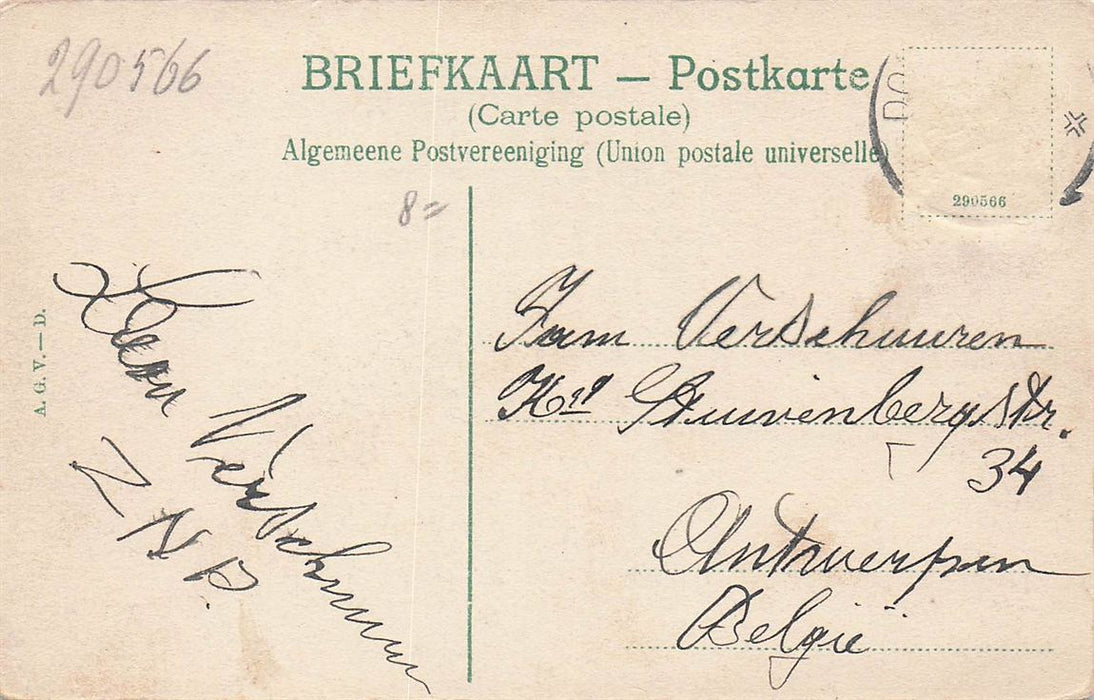 290566
BRIEFKAART — Postkarte
(Carte postale)
Algemeene Postvereeniging (Union postale universelle)
290566
8=
A. G. V. — D.
Verschuuren
Fam Verschuuren
Kel Stuivenbergstr.
34
Antwerpen
België